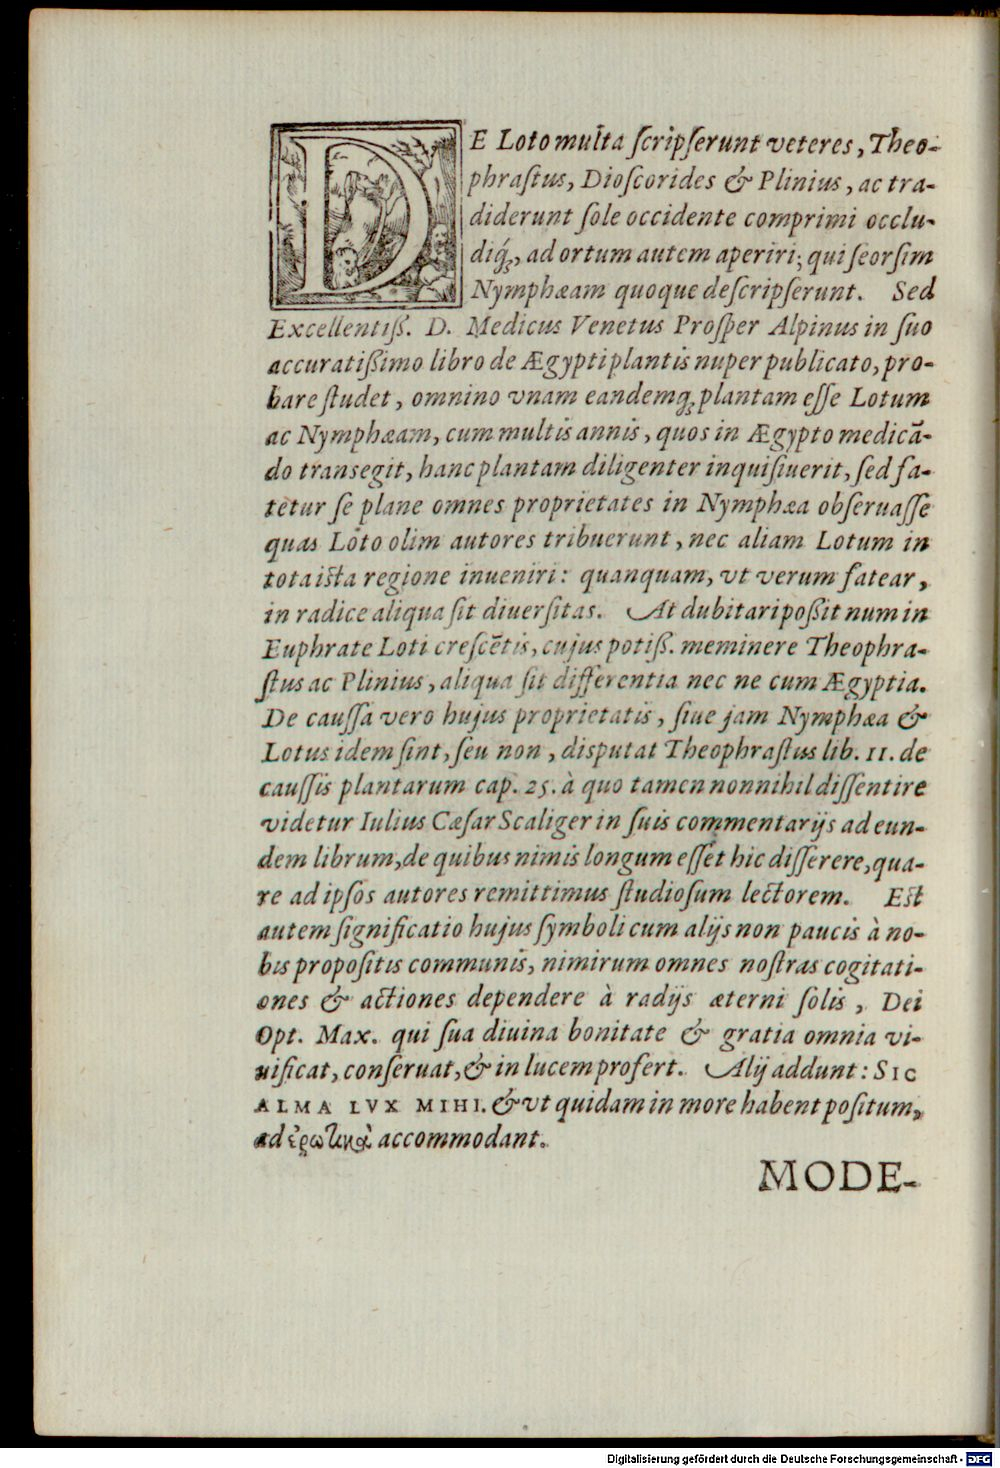 DE Loto multa ſcripſerunt veteres, Theo-
phraſtus, Dioſcorides & Plinius, ac tra-
diderunt ſole occidente comprimi occlu-
diq́;, ad ortum autem aperiri; qui ſeorſim
Nymphæam quoque deſcripſerunt. Sed
Excellentiſſ. D. Medicus Venetus Proſper Alpinus in ſuo
accuratißimo libro de Ægypti plantis nuper publicato, pro-
bare ſtudet, omnino vnam eandemq; plantam eſſe Lotum
ac Nymphæam, cum multis annis, quos in Ægypto medicā-
do transegit, hanc plantam diligenter inquiſiuerit, ſed fa-
tetur ſe plane omnes proprietates in Nymphæa obſeruaſſe
quas Loto olim autores tribuerunt, nec aliam Lotum in
tota iſta regione inueniri: quanquam, vt verum fatear,
in radice aliqua ſit diuerſitas. At dubitari poßit num in
Euphrate Loti creſcētis, cujus potiß. meminere Theophra-
ſtus ac Plinius, aliqua ſit differentia nec ne cum Ægyptia.
De cauſſa vero hujus proprietatis, ſiue jam Nymphæa &
Lotus idem ſint, ſeu non, disputat Theophraſtus lib. 11. de
cauſſis plantarum cap. 25. à quo tamen nonnihil diſſentire
videtur Iulius Cæſar Scaliger in ſuis commentarijs ad eun-
dem librum, de quibus nimis longum eſſet hic differere, qua-
re ad ipſos autores remittimus ſtudioſum lectorem. Eſt
autem ſignificatio hujus ſymboli cum alijs non paucis à no-
bis propoſitis communis, nimirum omnes noſtras cogitati-
ones & actiones dependere à radijs æterni ſolis, Dei
Opt. Max. qui ſua diuina bonitate & gratia omnia vi-
uificat, conſeruat, & in lucem profert. Alij addunt: SIC
ALMA LVX MIHI. & vt quidam in more habent poſitum,
ad ἐρωτικὰ accommodant.
MODE-
Digitalisierung gefördert durch die Deutsche Forschungsgemeinschaft - DFG